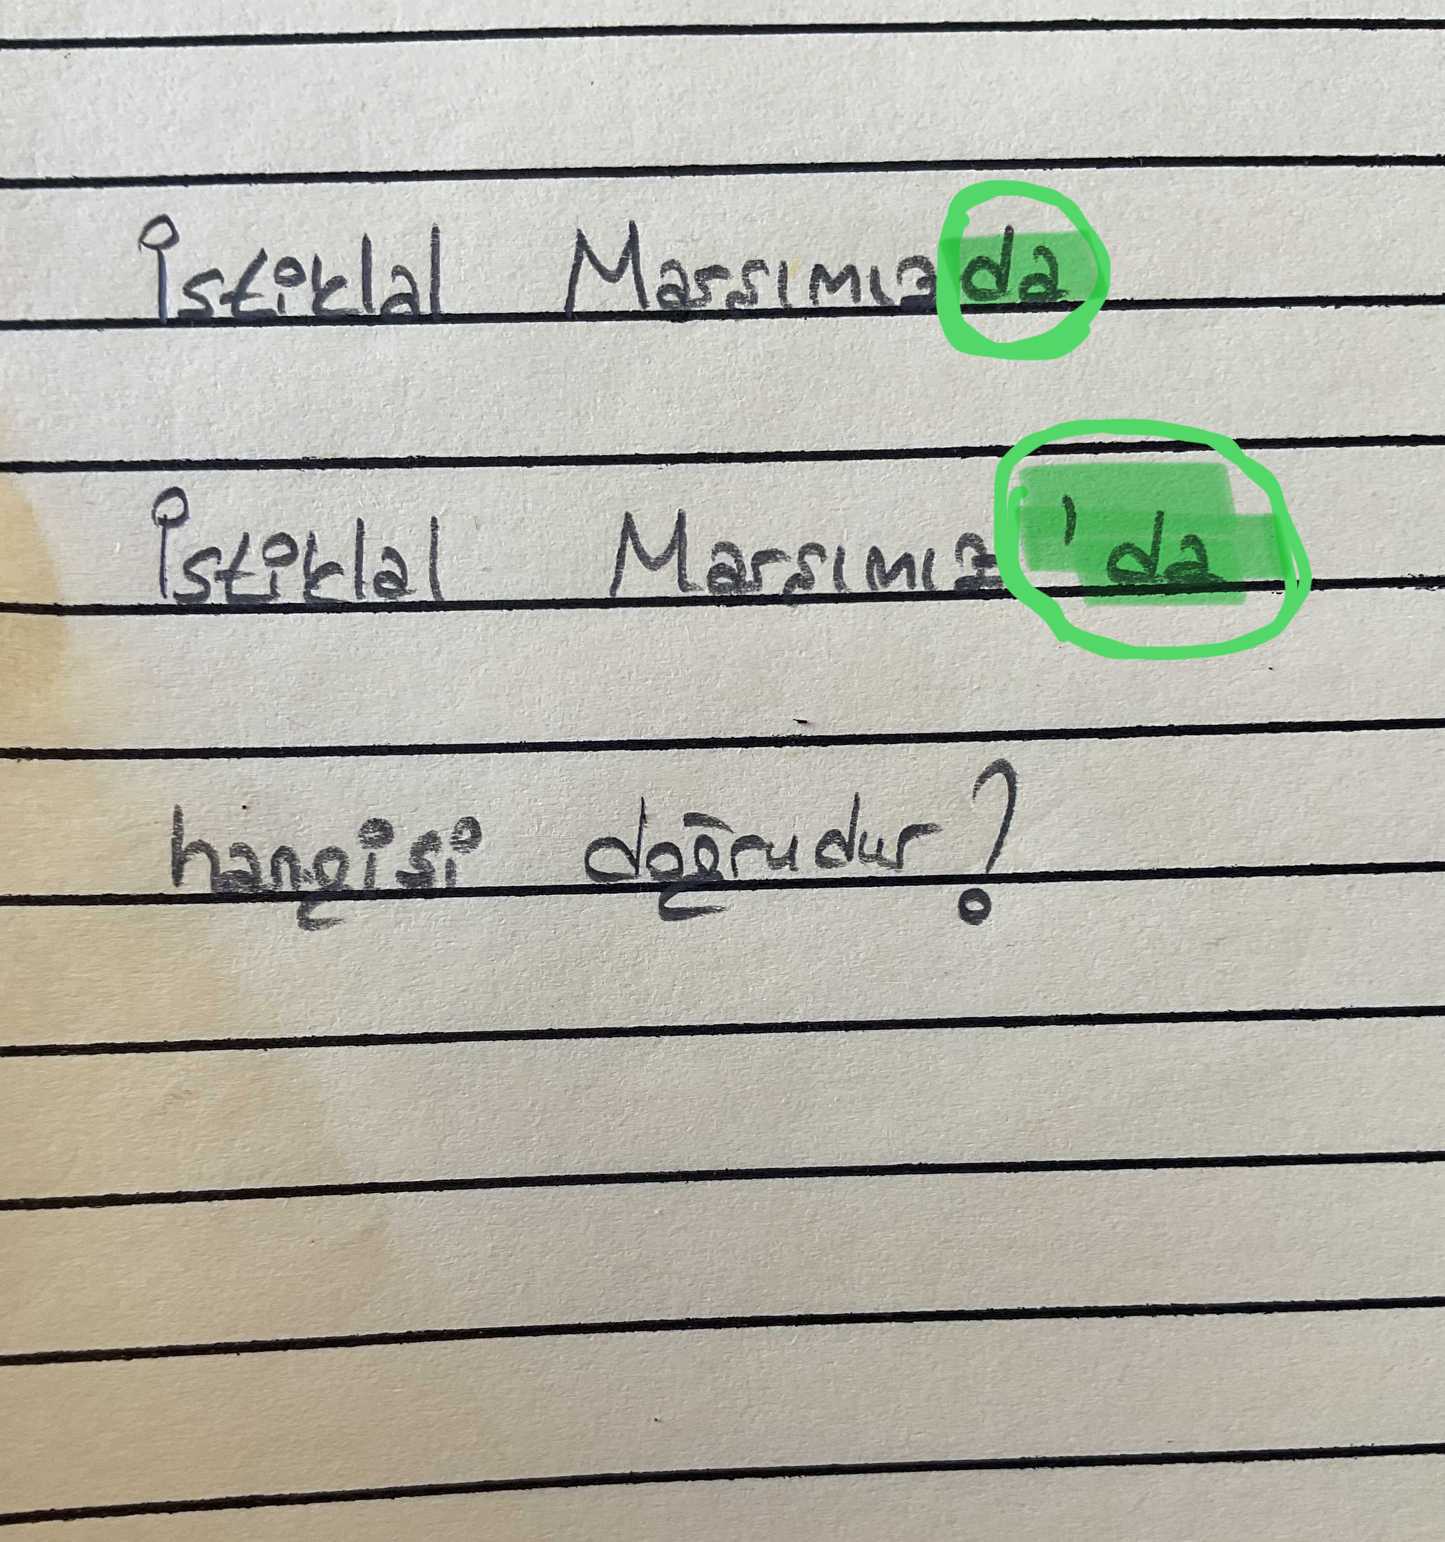 İstiklal Marşımızda
İstiklal Marşımız'da
hangisi doğrudur?